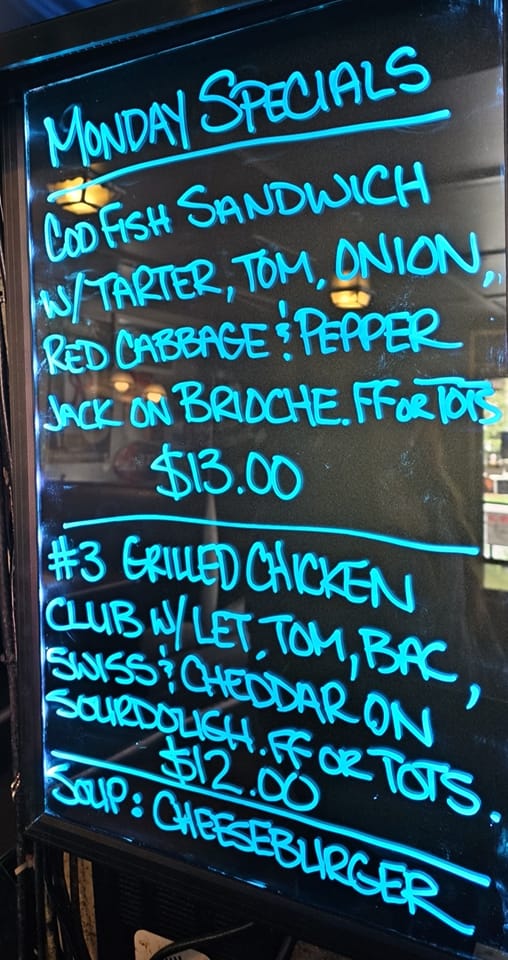 MONDAY SPECIALS
COD FISH SANDWICH
W/ TARTER, TOM, ONION,
RED CABBAGE & PEPPER
JACK ON BRIOCHE. FF OR TOTS
$13.00
#3 GRILLED CHICKEN
CLUB W/ LET, TOM, BAC,
SWISS & CHEDDAR ON
SOURDOUGH. FF OR TOTS.
$12.00
SOUP: CHEESEBURGER